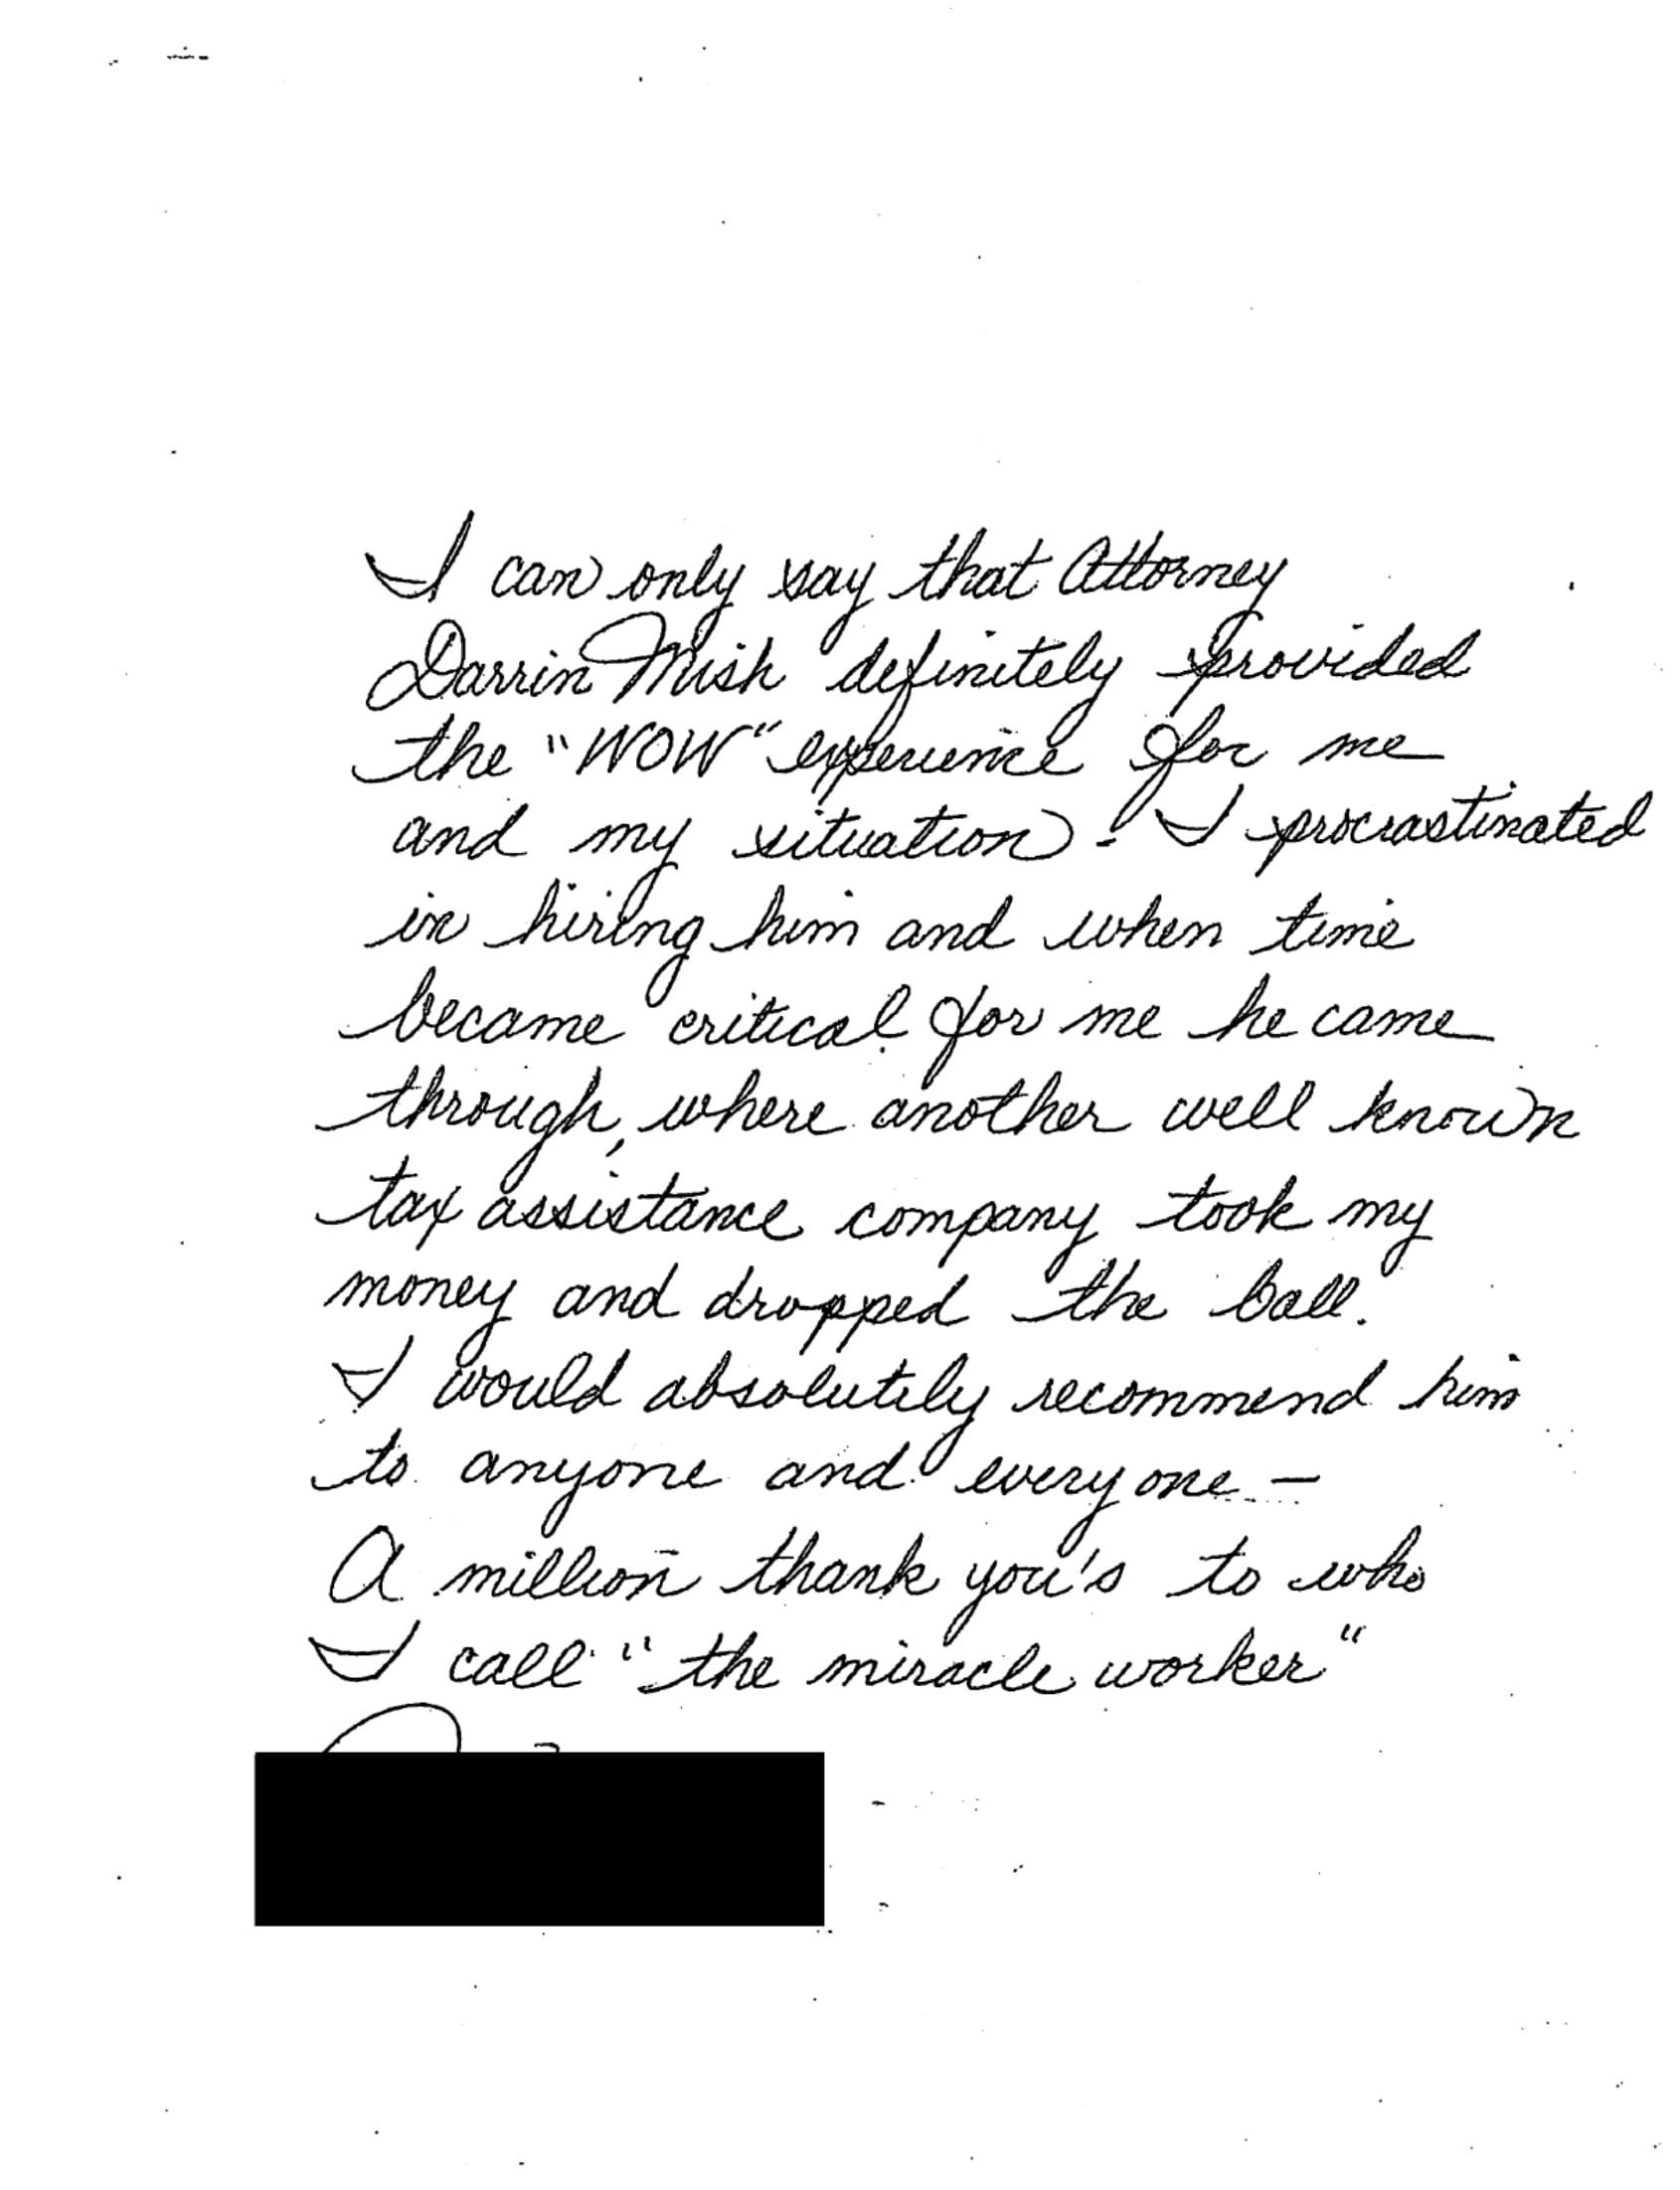 I can only say that Attorney
Darrin Mish definitely provided
the "WOW" experience for me
and my situation. I procrastinated
in hiring him and when time
became critical for me he came
through, where another well known
tax assistance company took my
money and dropped the ball.
I would absolutely recommend him
to anyone and everyone -
A million thank you's to who
I call "the miracle worker"